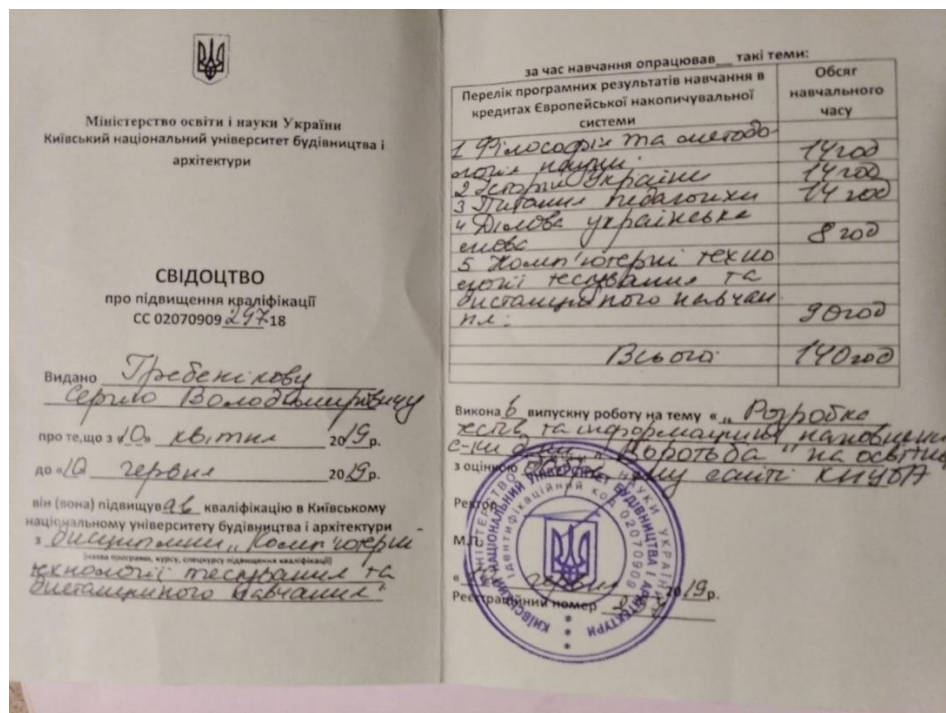 Міністерство освіти і науки України
Київський національний університет будівництва і
архітектури
СВІДОЦТВО
про підвищення кваліфікації
СС 02070909 297-18
Видано Гребенікову
Сергію Володимировичу
про те,що з «10» квітня 2019р.
до «10 червня 2019р.
він (вона) підвищував кваліфікацію в Київському
національному університету будівництва і архітектури
з дисципліни „Комп'ютерні
(назва програми, курсу, спецкурсу підвищення кваліфікації)
технології тестування та
дистанційного навчання"
за час навчання опрацював__ такі теми:
Перелік програмних результатів навчання в
кредитах Європейської накопичувальної
системи
Обсяг
навчального
часу
1 Філософія та методо
логія науки. 14год
2 Історія України 14год
3 Питання педагогіки 14 год
4 Ділова українська
мова 8 год
5 Комп'ютерні техно
логії тестування та
дистанційного навчан
ня. 90год
Всього 140год
Виконав випускну роботу на тему « „Розробка
тестів та інформаційні наповнення
с-ки дисц. „Боротьба" на освітнь
з оцінкою ному сайті КНУБА
Ректор
М.П.
« червня 2019р.
Реєстраційний номер
МІНІСТЕРСТВО ОСВІТИ І НАУКИ УКРАЇНИ
КИЇВСЬКИЙ НАЦІОНАЛЬНИЙ УНІВЕРСИТЕТ БУДІВНИЦТВА І АРХІТЕКТУРИ
Ідентифікаційний код 02070909